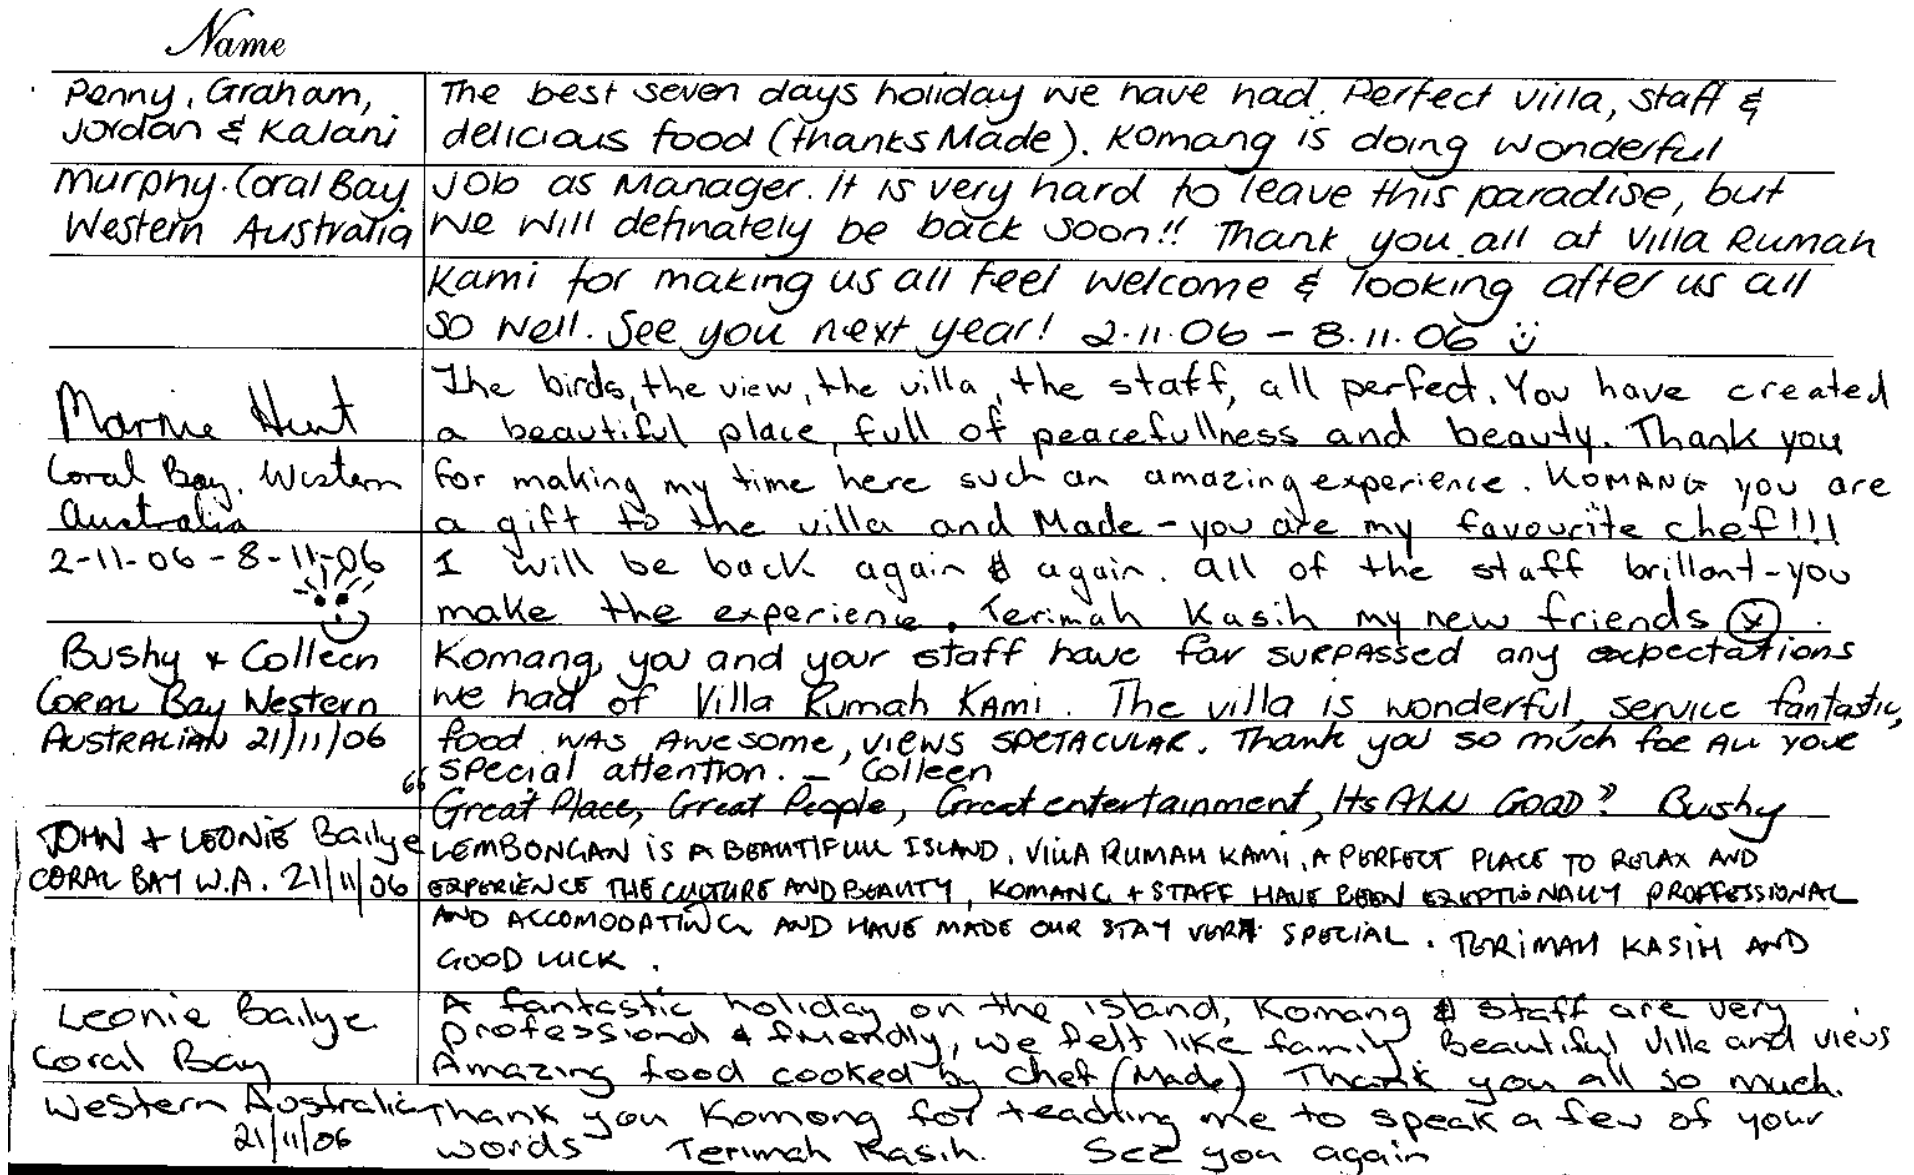 Name
Penny, Graham,
Jordan & Kalani
Murphy. Coral Bay
Western Australia
The best seven days holiday we have had. Perfect villa, staff &
delicious food (thanks Made). Komang is doing wonderful
job as Manager. It is very hard to leave this paradise, but
we will definately be back soon!! Thank you all at Villa Rumah
Kami for making us all feel welcome & looking after us all
so well. See you next year! 2.11.06 - 8.11.06 ü
Marnie Hunt
Coral Bay, Western
Australia
2-11-06 - 8-11-06
The birds, the view, the villa, the staff, all perfect. You have created
a beautiful place, full of peacefullness and beauty. Thank you
for making my time here such an amazing experience. KOMANG you are
a gift to the villa and Made - you are my favourite chef!!!
I will be back again & again. all of the staff brillant - you
make the experience. Terimah Kasih my new friends
Bushy + Colleen
Coral Bay Western
Australian 21/11/06
Komang, you and your staff have far surpassed any expectations
we had of Villa Rumah Kami. The villa is wonderful, service fantastic,
food was awesome, views spetacular. Thank you so much for all your
special attention. - Colleen
"Great Place, Great People, Great entertainment, Its ALL GOOD" Bushy
JOHN + LEONIE Bailye
CORAL BAY W.A. 21/11/06
LEMBONGAN IS A BEAUTIFULL ISLAND, VILLA RUMAH KAMI, A PERFECT PLACE TO RELAX AND
EXPERIENCE THE CULTURE AND BEAUTY, KOMANG + STAFF HAVE BEEN EXEPTIONALLY PROFFESSIONAL
AND ACCOMODATING AND HAVE MADE OUR STAY VERY SPECIAL. TERIMAH KASIH AND
GOOD LUCK.
Leonie Bailye
Coral Bay
Western Australia
21/11/06
A fantastic holiday on the island, Komang & staff are very
professional & friendly, we felt like family. Beautiful Villa and views
Amazing food cooked by chef (Made) Thank you all so much.
Thank you Komang for teaching me to speak a few of your
words Terimah Kasih. See you again